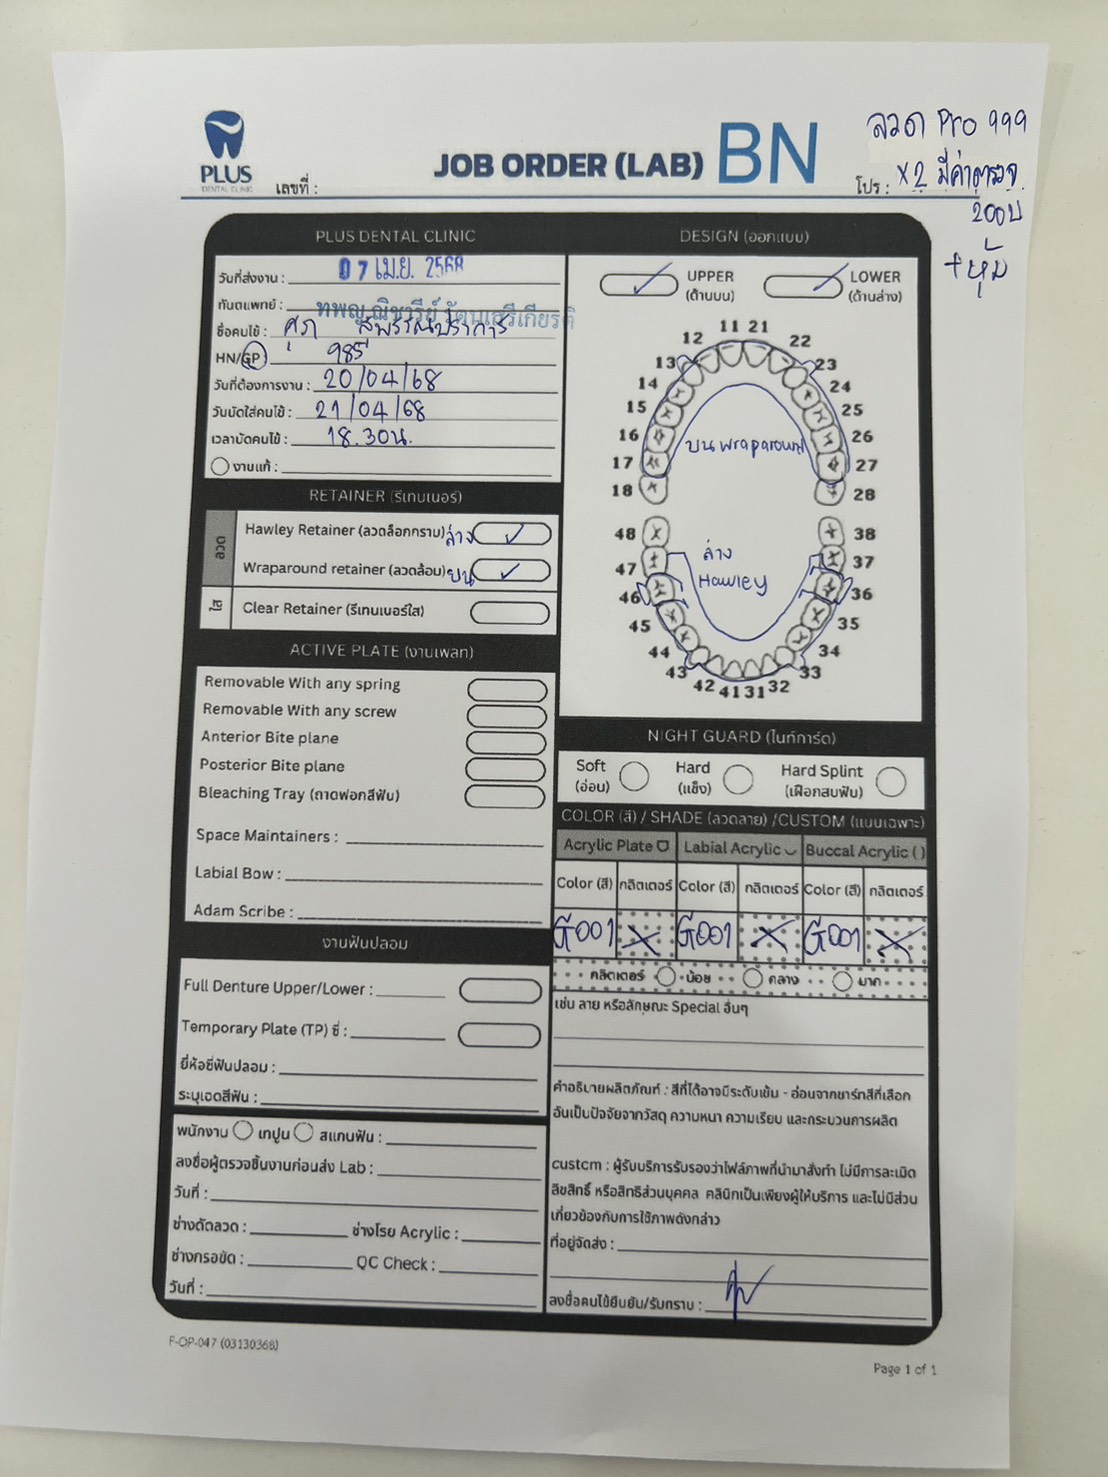 PLUS
DENTAL CLINIC
เลขที่ :
JOB ORDER (LAB) BN
ลวด Pro 999
โปร : x2 มีค่าตรวจ
200บ
+หุ้ม
PLUS DENTAL CLINIC
วันที่ส่งงาน : 07 เม.ย. 2568
ทันตแพทย์ : ทพญ.ณิชารีย์ รัตนเสรีเกียรติ
ชื่อคนไข้ : ศุภ
HN/GP : 985
วันที่ต้องการงาน : 20/04/68
วันนัดใส่คนไข้ : 21/04/68
เวลานัดคนไข้ : 18.30น.
งานแก้ :
RETAINER (รีเทนเนอร์)
ลวด
Hawley Retainer (ลวดล็อกกราม) ล่าง ✓
Wraparound retainer (ลวดล้อม) บน ✓
ใส
Clear Retainer (รีเทนเนอร์ใส)
ACTIVE PLATE (งานเพลท)
Removable With any spring
Removable With any screw
Anterior Bite plane
Posterior Bite plane
Bleaching Tray (ถาดฟอกสีฟัน)
Space Maintainers :
Labial Bow :
Adam Scribe :
งานฟันปลอม
Full Denture Upper/Lower :
Temporary Plate (TP) ซี่ :
ยี่ห้อซี่ฟันปลอม :
ระบุเฉดสีฟัน :
พนักงาน เทปูน สแกนฟัน :
ลงชื่อผู้ตรวจชิ้นงานก่อนส่ง Lab :
วันที่ :
ช่างดัดลวด : ช่างโรย Acrylic :
ช่างกรอขัด : QC Check :
วันที่ :
DESIGN (ออกแบบ)
✓ UPPER
(ด้านบน)
✓ LOWER
(ด้านล่าง)
11 21
12 22
13 23
14 24
15 25
16 26
17 27
18 28
บน wraparound
48 38
47 37
46 36
45 35
44 34
43 33
42 41 31 32
ล่าง
Hawley
NIGHT GUARD (ไนท์การ์ด)
Soft
(อ่อน)
Hard
(แข็ง)
Hard Splint
(เฝือกสบฟัน)
COLOR (สี) / SHADE (ลวดลาย) /CUSTOM (แบบเฉพาะ)
Acrylic Plate Labial Acrylic Buccal Acrylic ( )
Color (สี) กลิตเตอร์ Color (สี) กลิตเตอร์ Color (สี) กลิตเตอร์
G001 X G001 X G001 X
กลิตเตอร์ น้อย กลาง มาก
เช่น ลาย หรือลักษณะ Special อื่นๆ
คำอธิบายผลิตภัณฑ์ : สีที่ได้อาจมีระดับเข้ม - อ่อนจากชาร์ทสีที่เลือก
อันเป็นปัจจัยจากวัสดุ ความหนา ความเรียบ และกระบวนการผลิต
custom : ผู้รับบริการรับรองว่าไฟล์ภาพที่นำมาสั่งทำ ไม่มีการละเมิด
ลิขสิทธิ์ หรือสิทธิส่วนบุคคล คลินิกเป็นเพียงผู้ให้บริการ และไม่มีส่วน
เกี่ยวข้องกับการใช้ภาพดังกล่าว
ที่อยู่จัดส่ง :
ลงชื่อคนไข้ยืนยัน/รับทราบ :
F-OP-047 (03130368)
Page 1 of 1